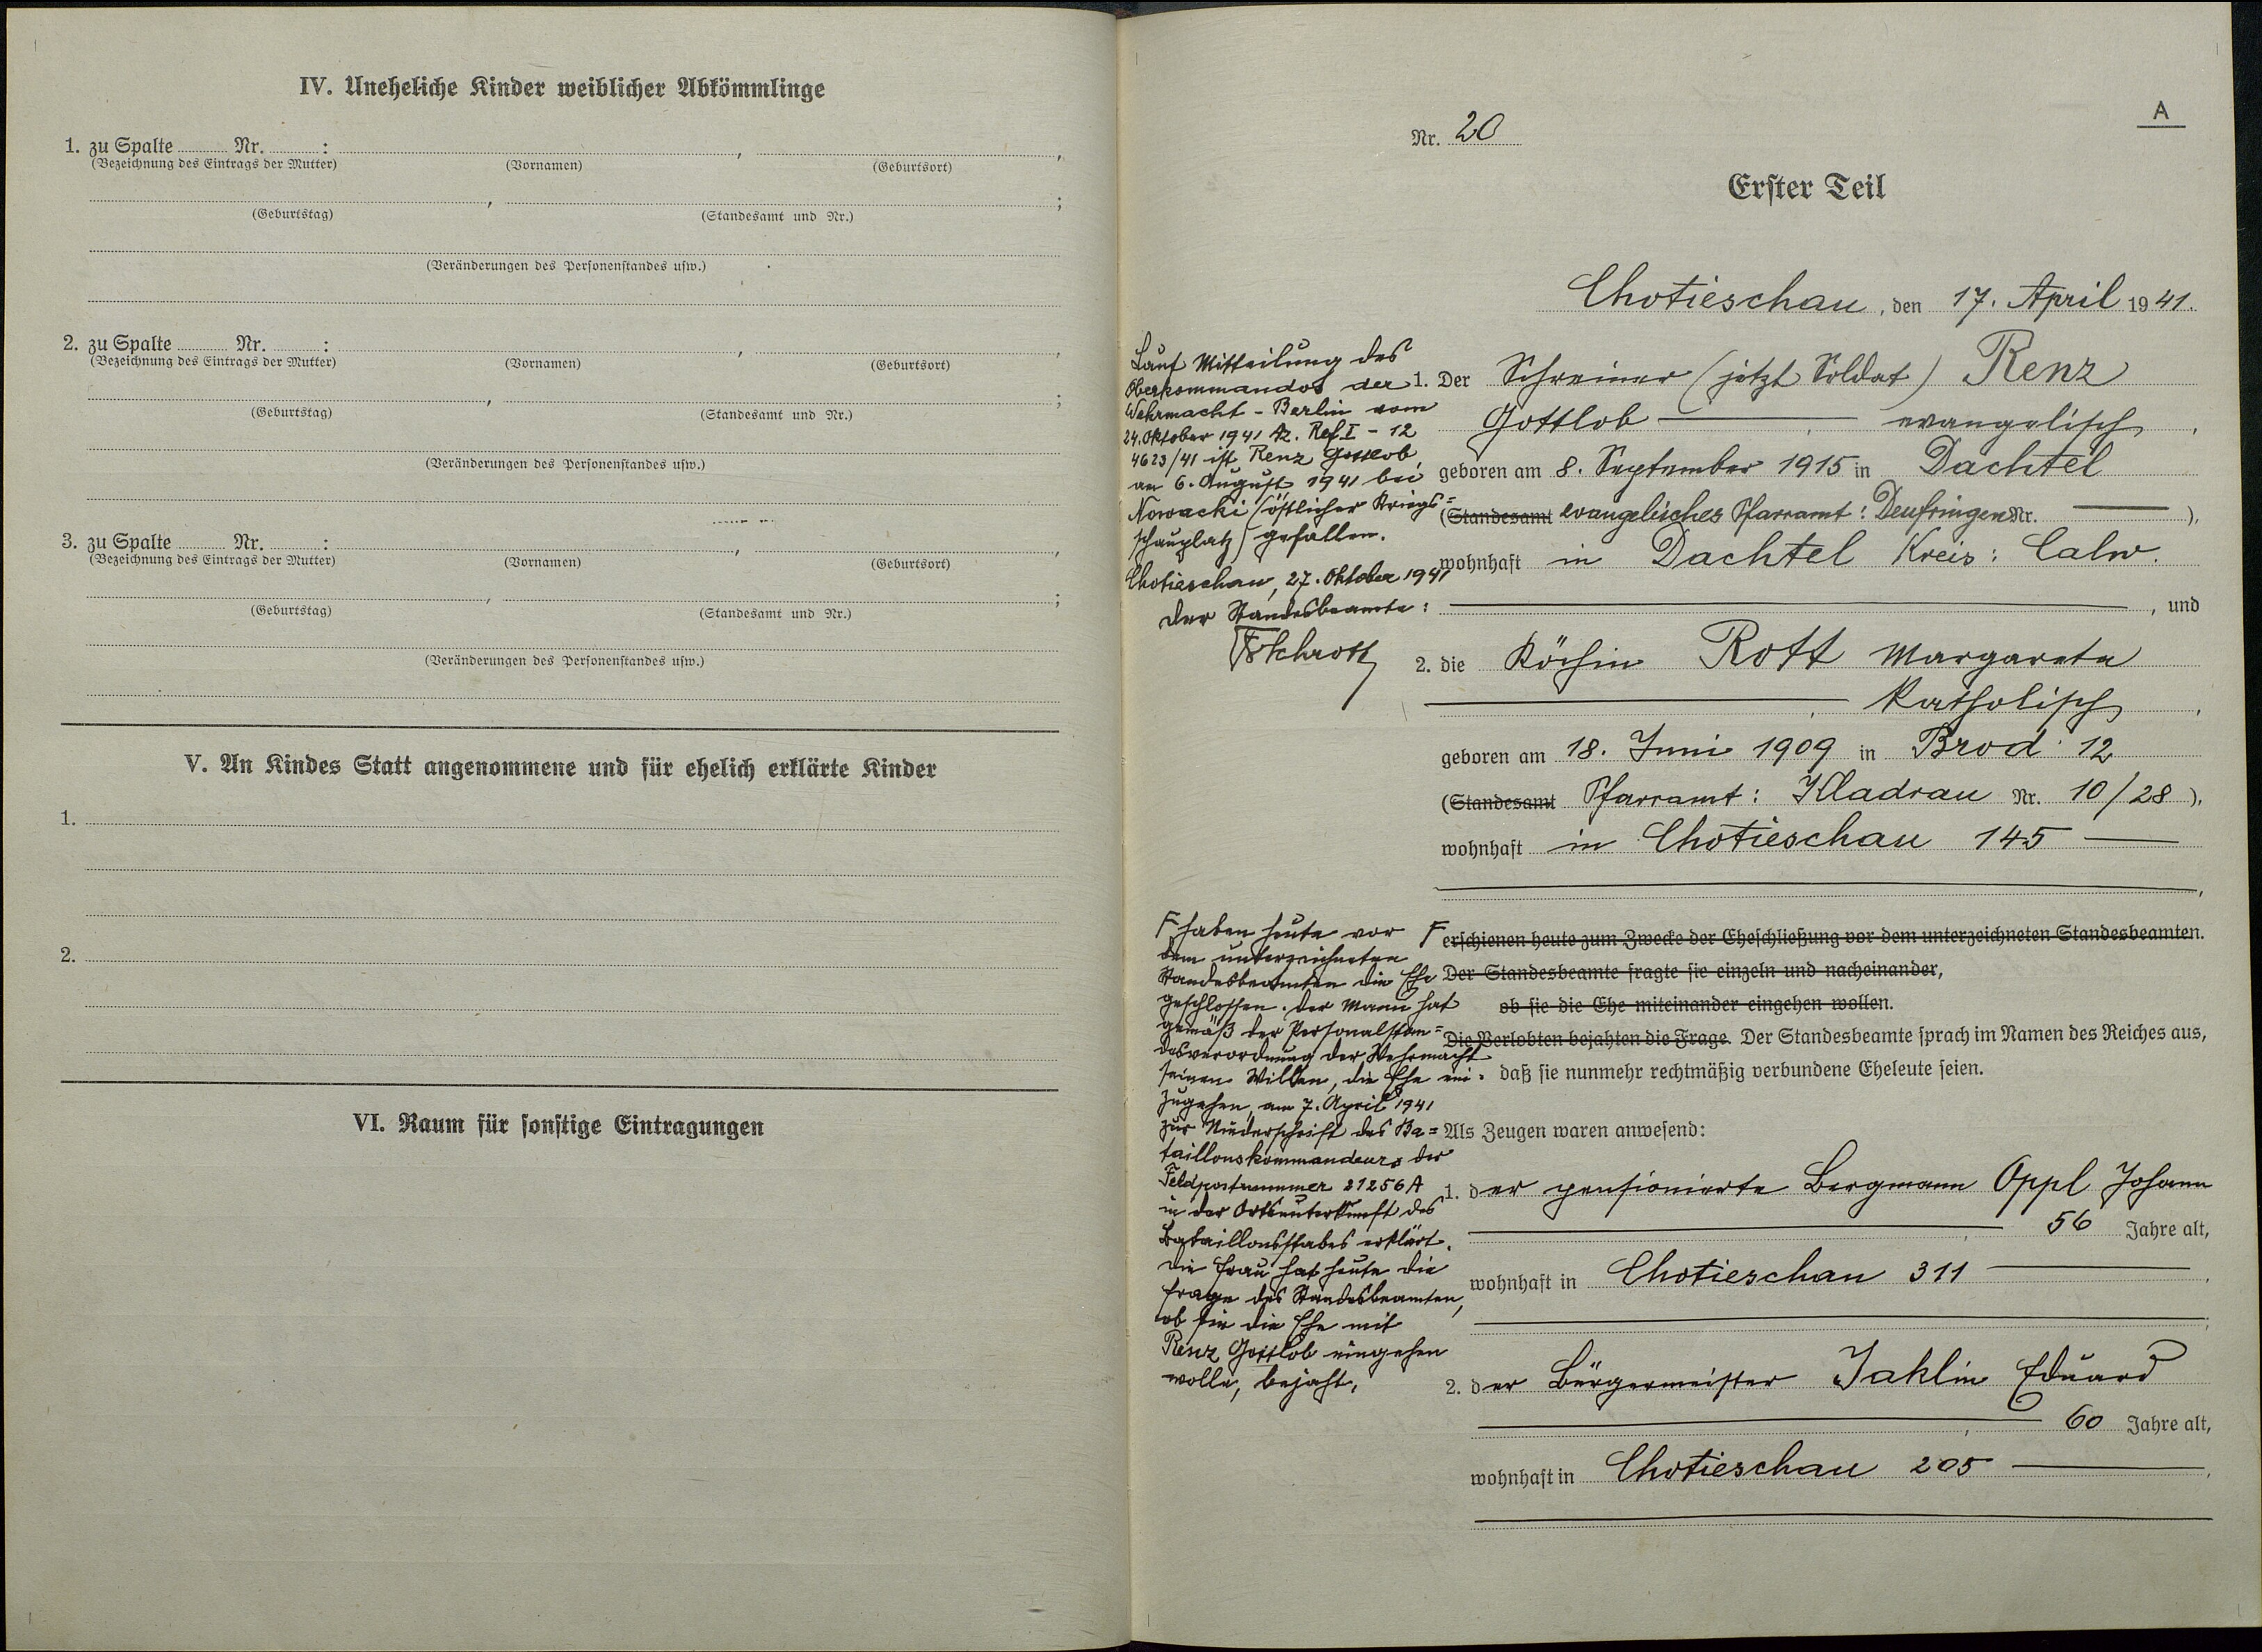 IV. Uneheliche Kinder weiblicher Abkömmlinge
1. zu Spalte Nr. : , ,
(Bezeichnung des Eintrags der Mutter) (Vornamen) (Geburtsort)
, ;
(Geburtstag) (Standesamt und Nr.)
(Veränderungen des Personenstandes usw.)
2. zu Spalte Nr. : , ,
(Bezeichnung des Eintrags der Mutter) (Vornamen) (Geburtsort)
, ;
(Geburtstag) (Standesamt und Nr.)
(Veränderungen des Personenstandes usw.)
3. zu Spalte Nr. : , ,
(Bezeichnung des Eintrags der Mutter) (Vornamen) (Geburtsort)
, ;
(Geburtstag) (Standesamt und Nr.)
(Veränderungen des Personenstandes usw.)
V. An Kindes Statt angenommene und für ehelich erklärte Kinder
1.
2.
VI. Raum für sonstige Eintragungen
A
Nr. 20
Erster Teil
Chotieschau, den 17. April 1941.
Laut Mitteilung des
Oberkommandos der
Wehrmacht - Berlin vom
24. Oktober 1941 Az. Ref. I - 12
4623/41 ist Renz Gottlob
am 6. August 1941 bei
Nowacki (östlicher Kriegs=
schauplatz) gefallen.
Chotieschau, 27. Oktober 1941
Der Standesbeamte:
1. Der Schreiner (jetzt Soldat) Renz
Gottlob , evangelisch ,
geboren am 8. September 1915 in Dachtel
(Standesamt evangelisches Pfarramt: Deufringen Nr. ),
wohnhaft in Dachtel Kreis: Calw.
, und
2. die Köchin Rott Margareta
, katholisch ,
geboren am 18. Juni 1909 in Brod 12
(Standesamt Pfarramt: Kladrau Nr. 10/28 ),
wohnhaft in Chotieschau 145
,
F haben heute vor
dem unterzeichneten
Standesbeamten die Ehe
geschlossen. Der Mann hat
gemäß der Personalstan=
desverordnung der Wehrmacht
seinen Willen, die Ehe ein=
zugehen, am 7. April 1941
zur Niederschrift des Ba=
taillonskommandeurs der
Feldpostnummer 21256 A
in der Ortsunterkunft des
Bataillonsstabes erklärt.
Die Frau hat heute die
Frage des Standesbeamten,
ob sie die Ehe mit
Renz Gottlob eingehen
wolle, bejaht.
F erschienen heute zum Zwecke der Eheschließung vor dem unterzeichneten Standesbeamten.
Der Standesbeamte fragte sie einzeln und nacheinander,
ob sie die Ehe miteinander eingehen wollen.
Die Verlobten bejahten die Frage. Der Standesbeamte sprach im Namen des Reiches aus,
daß sie nunmehr rechtmäßig verbundene Eheleute seien.
Als Zeugen waren anwesend:
1. der pensionierte Bergmann Oppl Johann
, 56 Jahre alt,
wohnhaft in Chotieschau 311 ,
;
2. der Bürgermeister Jaklin Eduard
, 60 Jahre alt,
wohnhaft in Chotieschau 205 ,